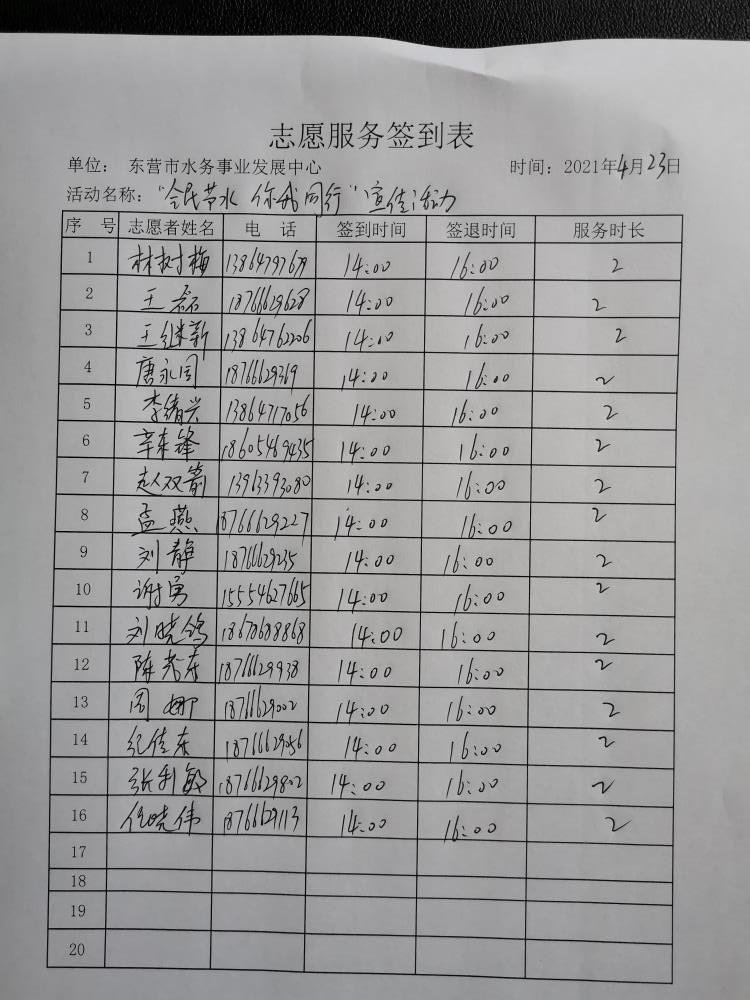 志愿服务签到表
单位： 东营市水务事业发展中心 时间：2021年4月23日
活动名称："全民节水 你我同行"宣传活动
序 号 志愿者姓名 电 话 签到时间 签退时间 服务时长
1 林树梅 13864797679 14:00 16:00 2
2 王磊 18766629628 14:00 16:00 2
3 王继新 13864762206 14:00 16:00 2
4 唐永国 18766629369 14:00 16:00 2
5 李绪兴 13864717056 14:00 16:00 2
6 辛东锋 18605469435 14:00 16:00 2
7 赵双箭 13963393080 14:00 16:00 2
8 孟燕 18766629227 14:00 16:00 2
9 刘静 18766629235 14:00 16:00 2
10 谢勇 15554627665 14:00 16:00 2
11 刘晓鸽 18678688868 14:00 16:00 2
12 陈 东 18766629938 14:00 16:00 2
13 周娜 18766629002 14:00 16:00 2
14 纪佳东 18766629056 14:00 16:00 2
15 张利敏 18766629802 14:00 16:00 2
16 任晓伟 18766629113 14:00 16:00 2
17
18
19
20